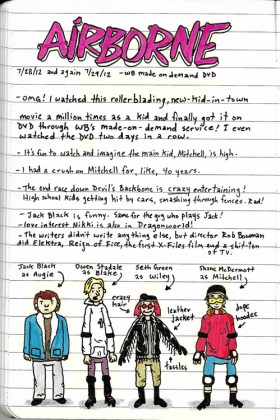 AIRBORNE
7/28/12 and again 7/29/12 -WB made on demand DVD
-OMG! I watched this rollerblading, new-kid-in-town
movie a million times as a kid and finally got it on
DVD through WB's made-on-demand service! I even
watched the DVD two days in a row.
-It's fun to watch and imagine the main kid, Mitchell, is high.
-I had a crush on Mitchell for, like, 40 years.
-The end race down Devil's Backbone is crazy entertaining!
High school kids getting hit by cars, smashing through fences. Rad!
-Jack Black is funny. Same for the guy who plays Jack!
-love interest Nikki is also in Dragonworld!
-The writers didn't write anything else, but director Rob Bowman
did Elektra, Reign of Fire, the first X-Files film and a shit-ton
of TV.
Jack Black
as Augie
Owen Stadele
as Blake
Seth Green
as Wiley
Shane McDermott
as Mitchell
crazy
hair
leather
jacket
dope
hoodee
tassles